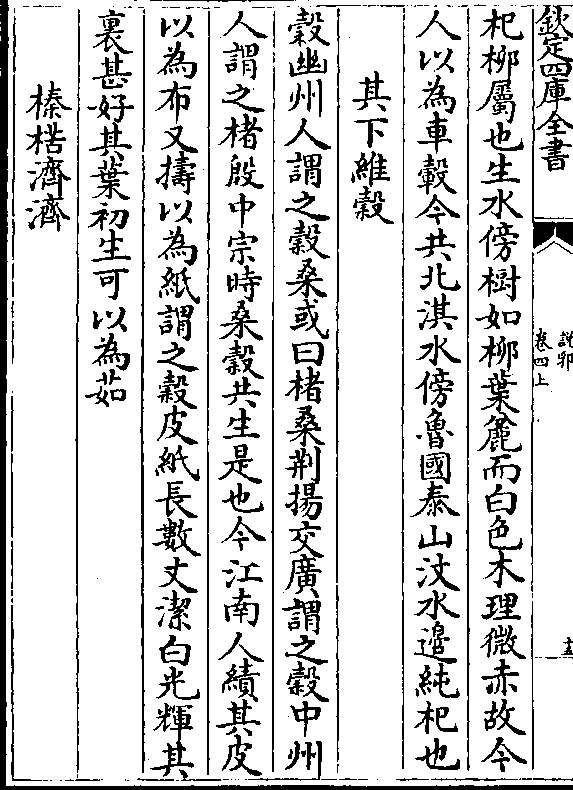 欽定四庫全書
說郛
卷四上
杞柳屬也生水傍樹如柳葉麄而白色木理微赤故今
人以為車轂今共北淇水傍魯國泰山汶水邉純杞也
其下維榖
榖幽州人謂之榖桑或曰楮桑荆揚交廣謂之榖中州
人謂之楮殷中宗時桑榖共生是也今江南人績其皮
以為布又擣以為紙謂之榖皮紙長數丈潔白光輝其
裏甚好其葉初生可以為茹
榛楛濟濟